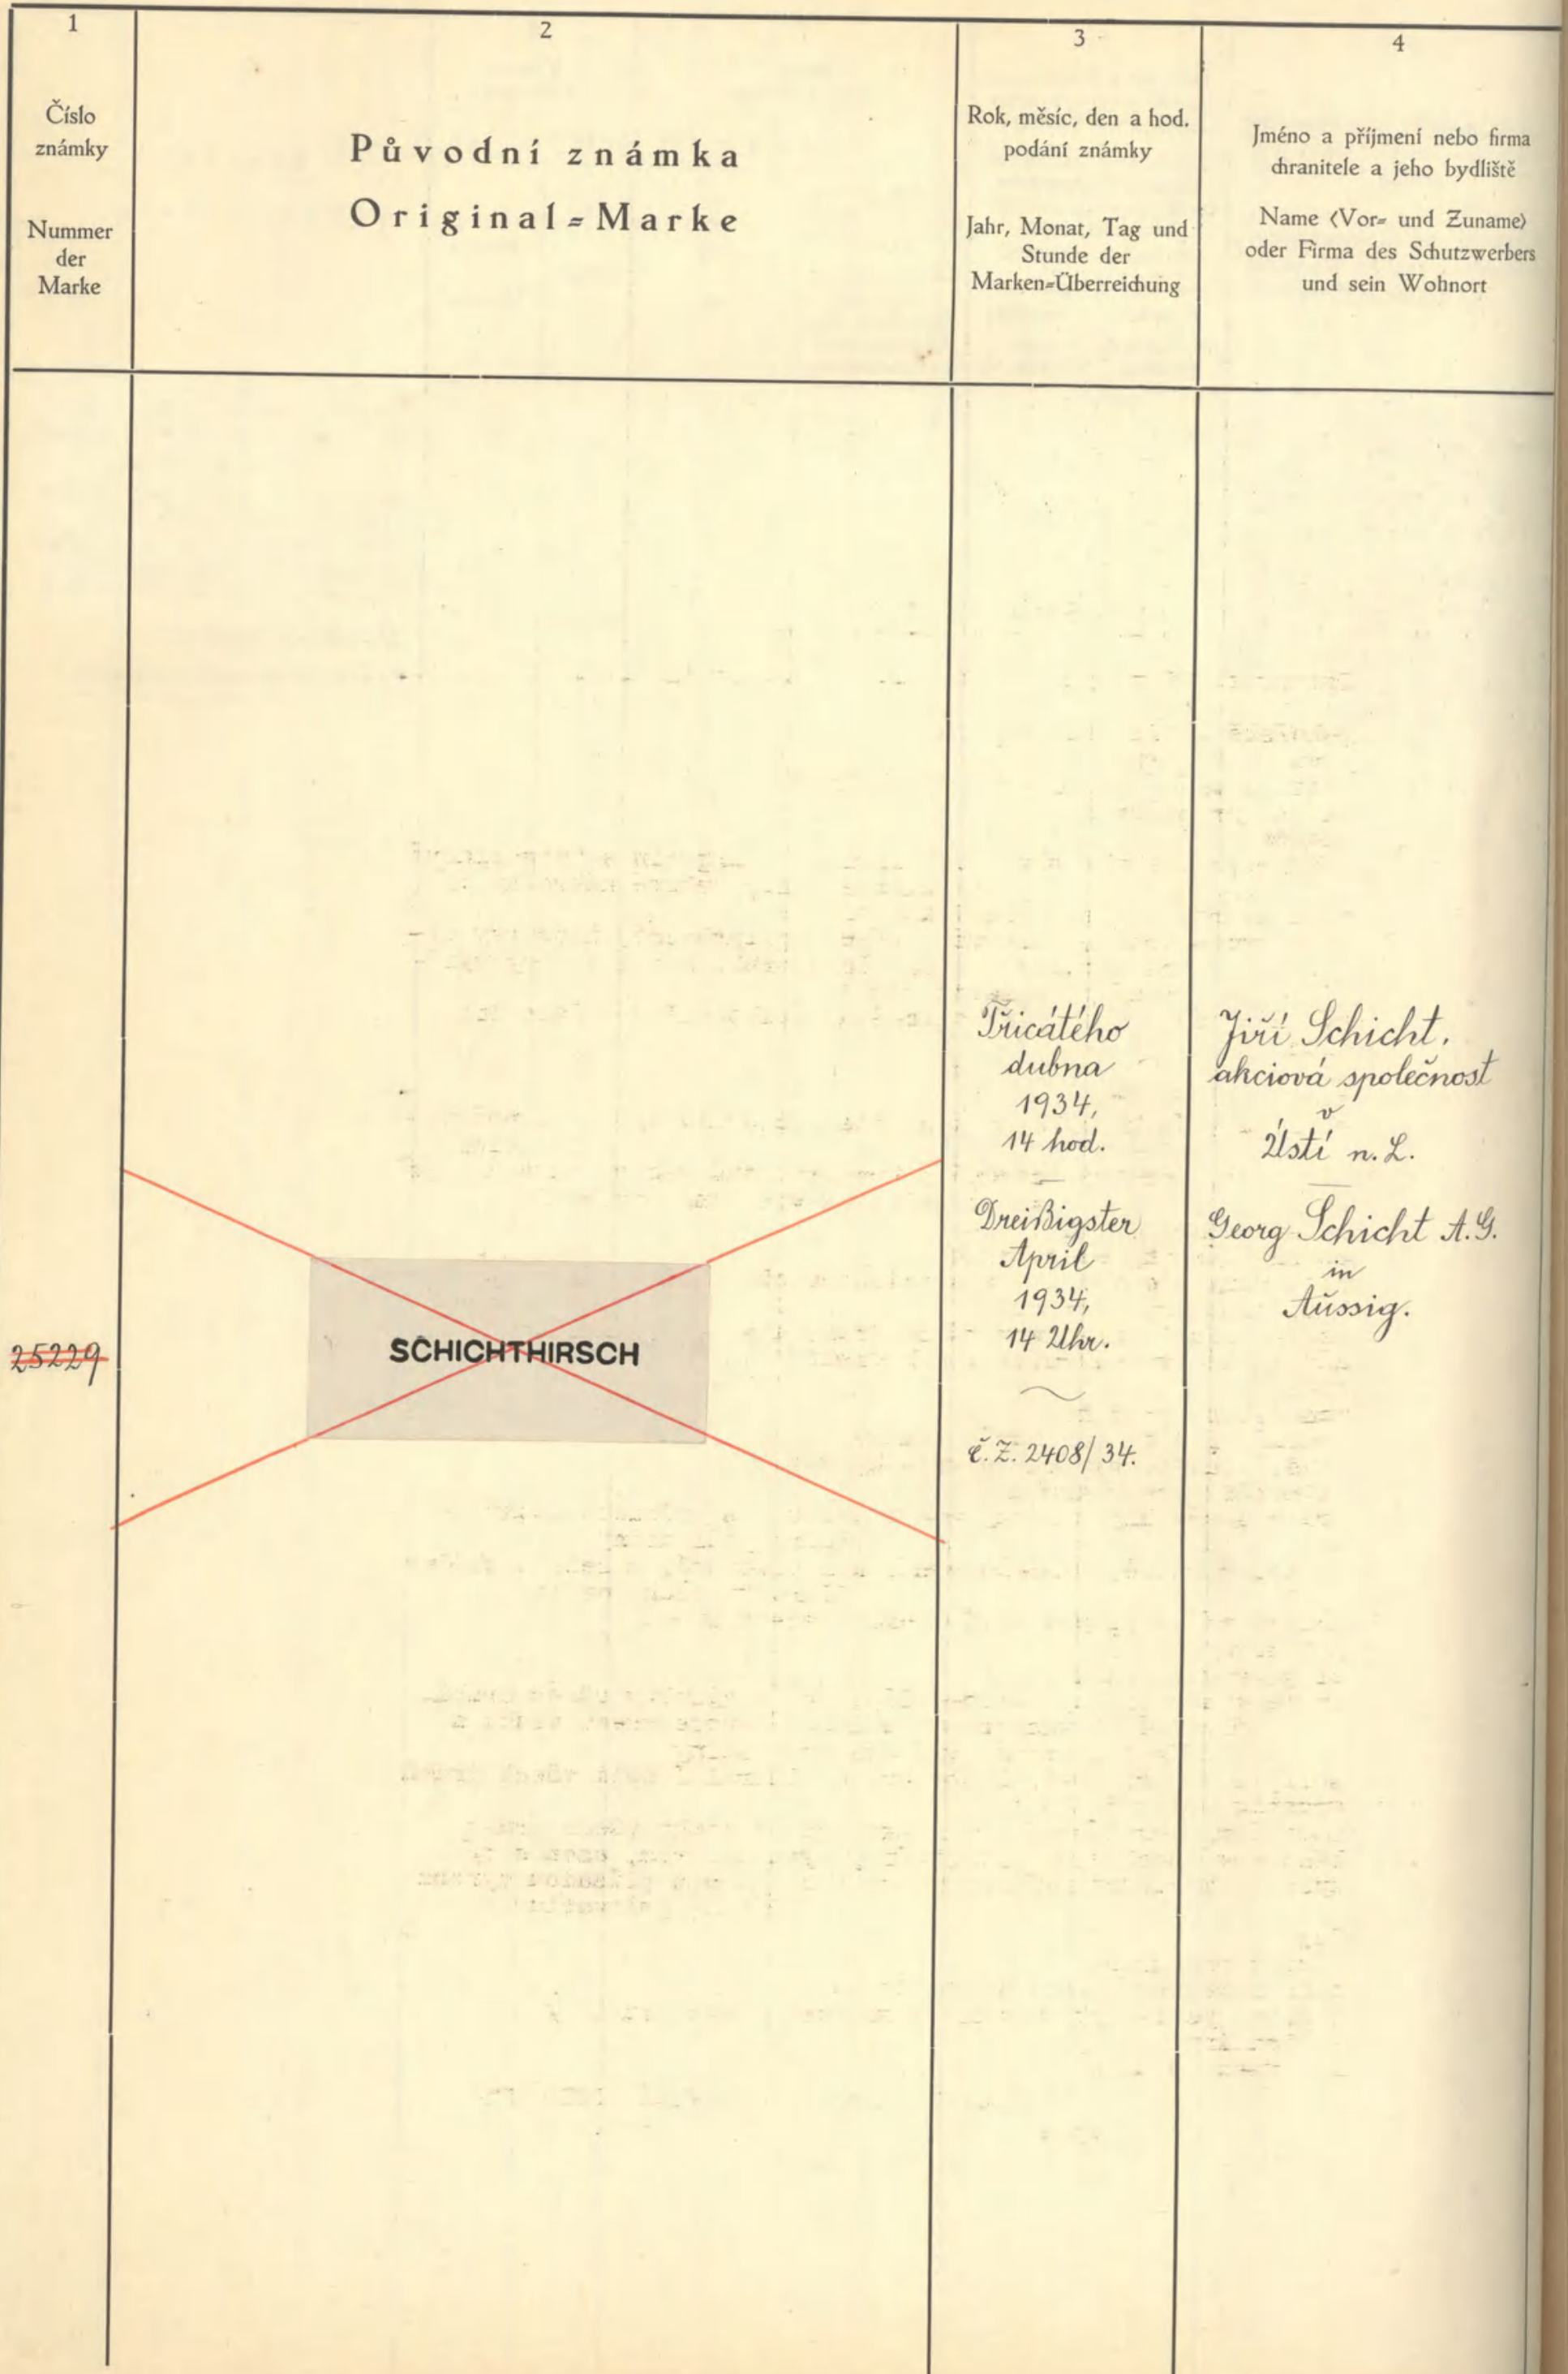 1
Číslo
známky
Nummer
der
Marke
2
Původní známka
Original=Marke
3
Rok, měsíc, den a hod.
podání známky
Jahr, Monat, Tag und
Stunde der
Marken=Überreichung
4
Jméno a příjmení nebo firma
chranitele a jeho bydliště
Name (Vor= und Zuname)
oder Firma des Schutzwerbers
und sein Wohnort
25229
SCHICHTHIRSCH
Třicátého
dubna
1934,
14 hod.
Dreißigster
April
1934,
14 Uhr.
č.Z. 2408/34.
Jiří Schicht,
akciová společnost
v
Ústí n. L.
Georg Schicht A.G.
in
Aussig.